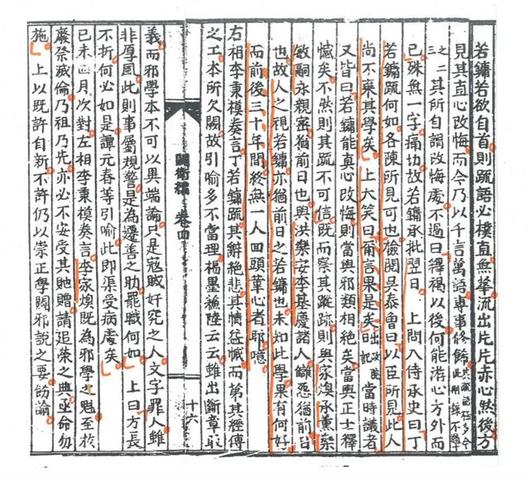 若鏞若欲自首則疏語必樸直無華流出片片赤心然後方
見其直心改悔而今乃以千言萬語專事修飾其疏語極多今此刪錄不過十
之二其所自謂改悔處不過曰釋褐以後何能游心方外而
已殊無一字痛切故若鏞承批翌日 上問入侍承史曰丁
若鏞疏何如各陳所見可也檢閱吳泰曾曰以臣所見此人
尚不棄其學矣 上大笑曰爾言果是矣出政院日記當時識者
又皆曰若鏞能真心改悔則當與邪類相絶矣當與正士釋
憾矣不然則其疏不可信既而察其蹤跡則與家煥承薰樂
敏嗣永親密猶前日也與洪樂安李基慶諸人讎怨猶前日
也故人之視若鏞亦猶前日之若鏞也未知此學果有何好
而前後三十年間終無一人回頭革心者耶噫
右相李秉模奏言丁若鏞疏其辭絶悲其情益慽而第其經傳
之工本所欠闕故引喻多不當理楊墨儀陸云云雖出斷章取
闢衛編 卷四 十六
義而邪學本不可以異端論只是寇賊奸宄之人文字罪人雖
非厚風此則事屬規警是為遷善之助罷職何如 上曰方長
不折何必如是譚元春等引喻此即渠受病處矣
己未四月次對左相李秉模奏言李家煥既為邪學之魁至於
嚴禁戒倫乃祖乃先亦必不安受其貤贈請追榮之典亟命勿
施 上以既許自新不許仍以崇正學闢邪說之要飭諭